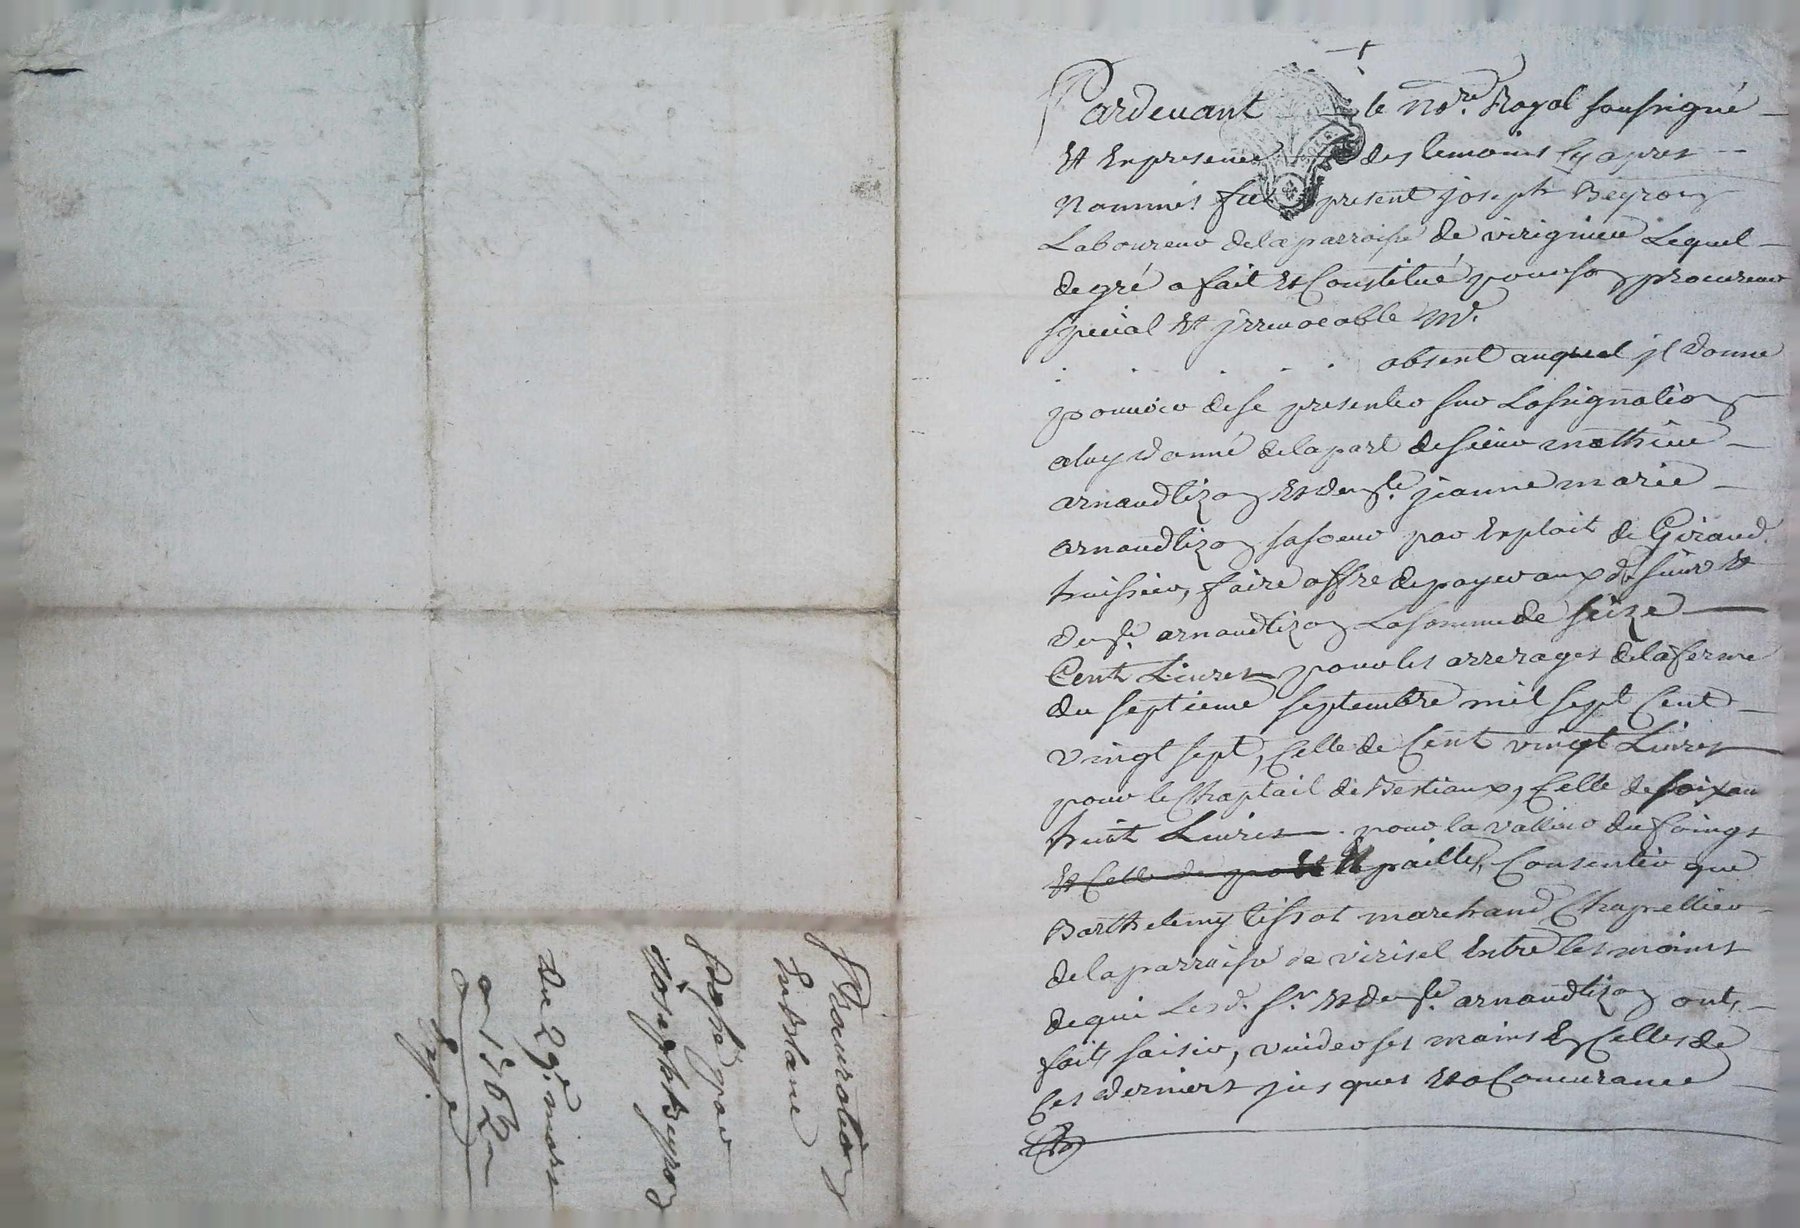 Pardevant le no.re Royal soussigné
Et En presence des temoins cy apres
Nommés fut present joseph Beyron
Laboureur dela parroisse de virignieu Lequel
de gré a fait Et Constitué pour son procureur
special Et jrrevocable M.e
absent auquel jl donne
pouvoir de se presenter sur Lassignation
a luy donné de la part de sieur mathieu
arnaudtizon Et de.lle jeanne marie
arnaudtizon sa soeur par Exploit de Giraud
huissier, faire offre de payer aux d. sieur Et
de.lle arnaudtizon La somme de seize
Cent Livres pour les arrerages de la ferme
du septieme septembre mil sept Cent
vingt sept, Celle de Cent vingt Livres
pour le Chaptail de Bestiaux, Celle de soixante
huit Livres pour la valleur du foings
Et Celle de Et paille, Consentir que
Barthelemy tissot marchand Chapellier
de la parroisse de viricel Entre les mains
de qui Lesd. s.r Et de.lle arnaudtizon ont
fait saisir, vuider ses mains En Celles de
Ces derniers jusques Et a Concurance
Procuration
En Blanc
Passé par
joseph Beyron
du 29.e mars
Exp.é